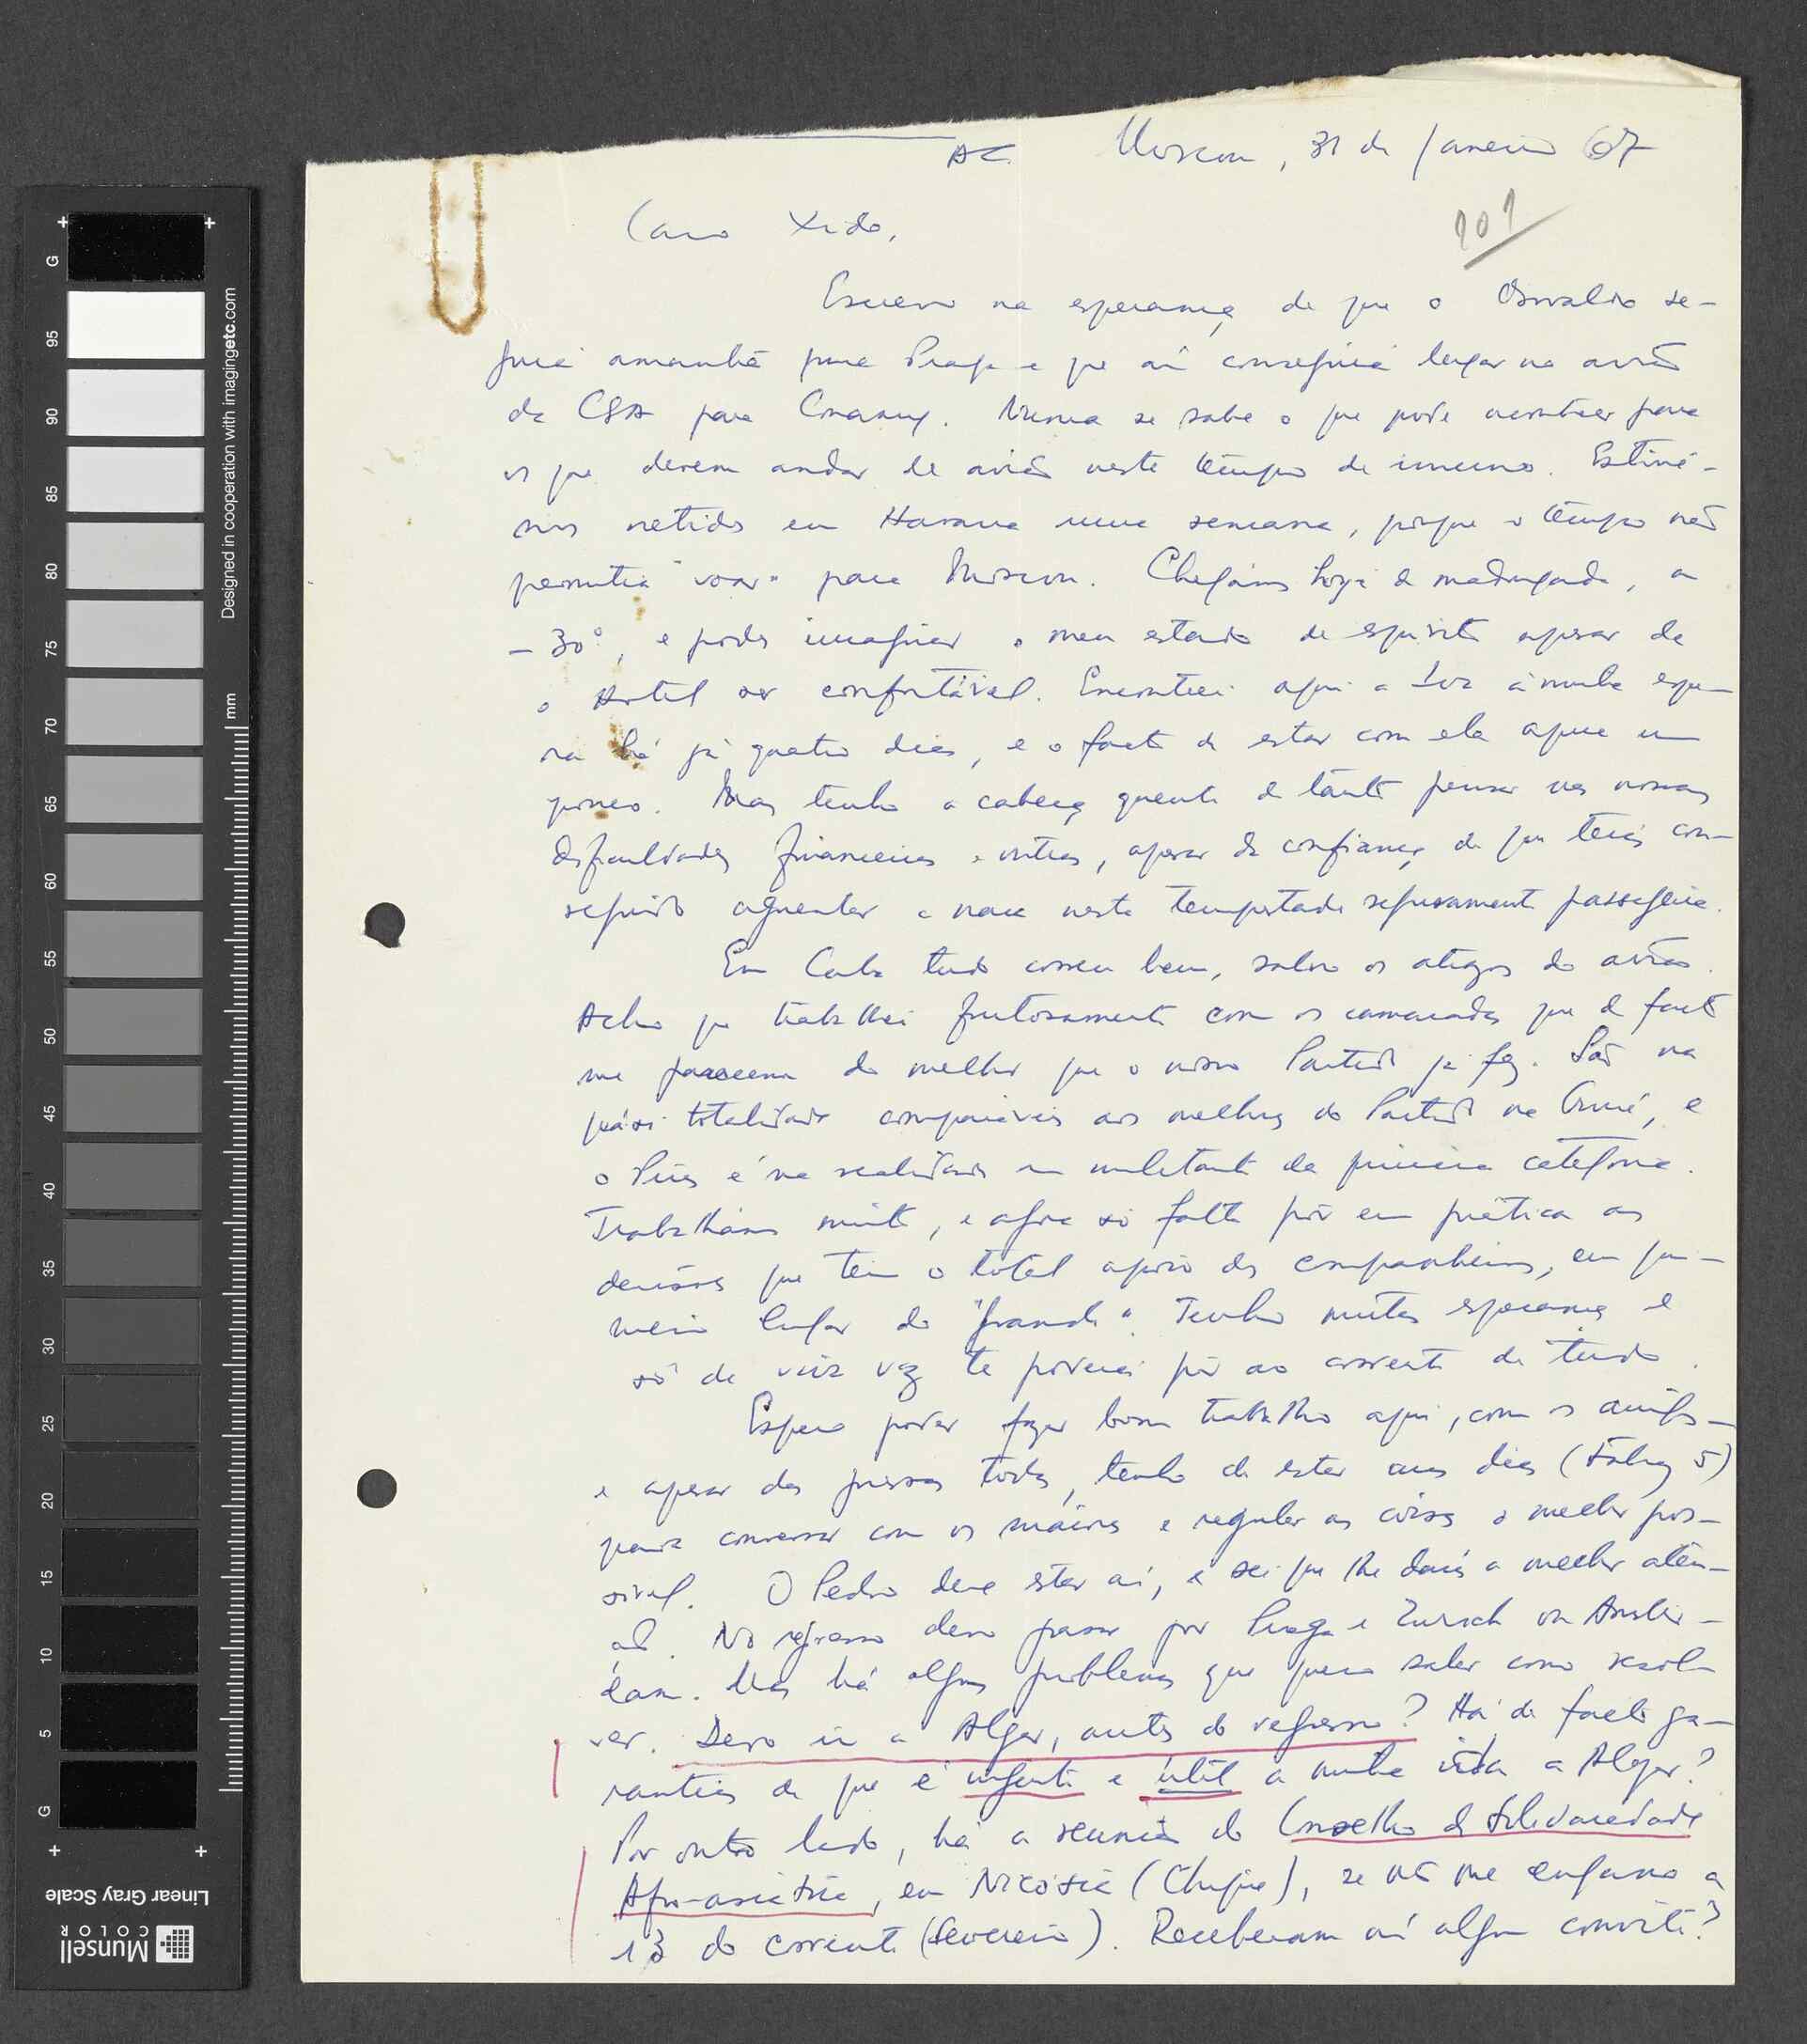 AC Moscou, 31 de Janeiro 67
101
Caro Xido,
Escrevo na esperança de que o Osvaldo se-
guirá amanhã para Praga e que aí conseguirá lugar no avião
da CSA para Conakry. Nunca se sabe o que pode acontecer para
os que devem andar de avião neste tempo de inverno. Estive-
mos retidos em Havana uma semana, porque o tempo não
permitia "voar" para Moscou. Chegámos hoje de madrugada, a
-30°, e podes imaginar o meu estado de espírito apesar de
o Hotel ser confortável. Encontrei aqui a à minha espe-
ra há já quatro dias, e o facto de estar com ela um
pouco. Mas tenho a cabeça quente de tanto pensar nas nossas
dificuldades financeiras e outras, apesar da confiança de que terás con-
seguido aguentar a nave nesta tempestade seguramente passageira.
Em Cuba tudo correu bem, salvo os atrazos do avião.
Acho que trabalhei frutuosamente com os camaradas que de facto
me parecem do melhor que o nosso Partido já fez. São na
quási totalidade comparáveis aos melhores do Partido na Guiné, e
o Pires é na realidade um militante de primeira categoria.
Trabalhámos muito, e agora só falta pôr em prática as
decisões que tem o total apoio dos companheiros, em pri-
meiro lugar do "grande". Tenho muitas esperanças e
só de viva voz te poderei pôr ao corrente de tudo.
Espero poder fazer bom trabalho aqui, com os amigos
e apesar das pressas todas, tenho de estar uns dias (talvez 5)
para conversar com os maiores e regular as coisas o melhor pos-
sível. O Pedro deve estar aí, e sei que lhe darás a melhor aten-
ção. No regresso devo passar por Praga e Zurich ou Amster-
dam. Mas há alguns problemas que quero saber como resol-
ver. Devo ir a Alger, antes do regresso? Há de facto ga-
rantias de que é urgente e útil a minha ida a Alger?
Por outro lado, há a reunião do Conselho de Solidariedade
Afro-asiática, em Nicósia (Chipre), se não me engano a
13 do corrente (Fevereiro). Receberam aí algum convite?
G
95
90
85
80
75
70
65
60
55
50
45
40
35
30
25
20
15
10
5
G
mm
Designed in cooperation with imagingetc.com
Linear Gray Scale
Munsell
COLOR